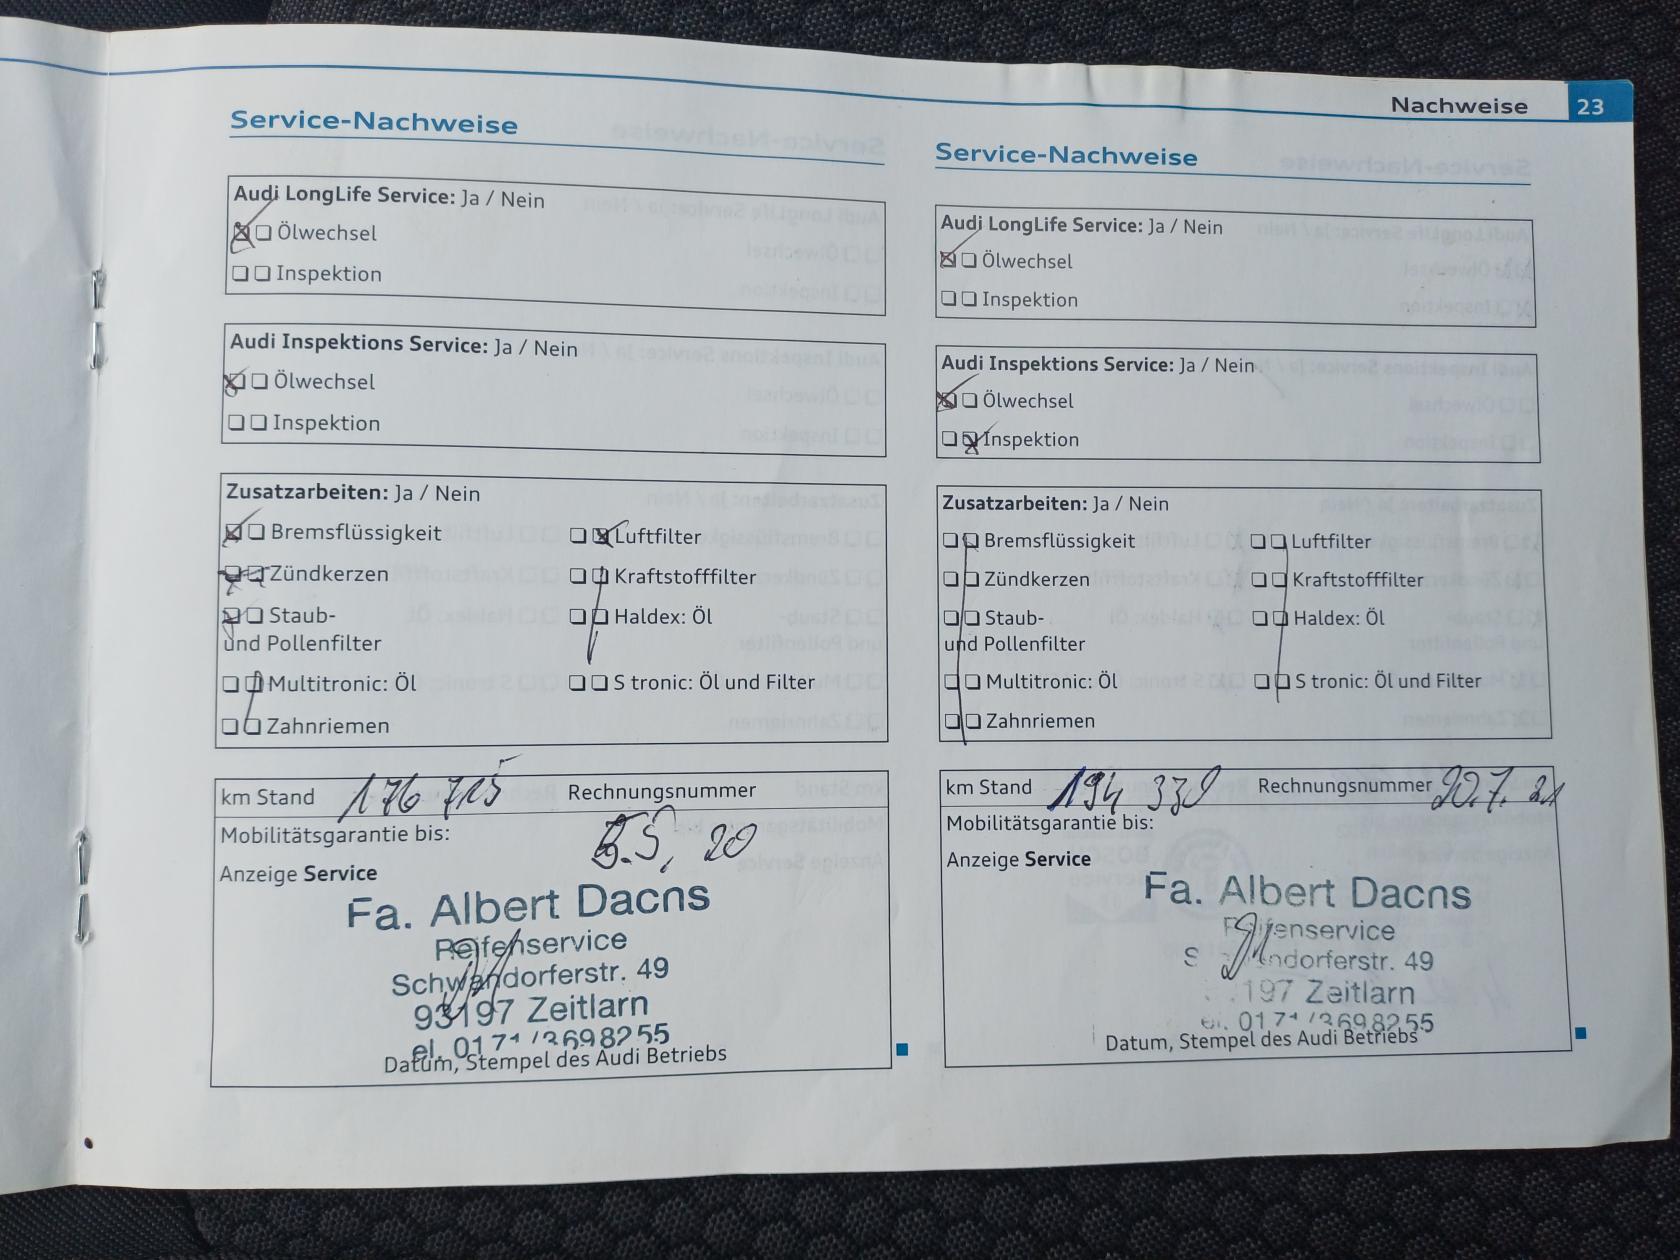 Nachweise 23
Service-Nachweise
Audi LongLife Service: Ja / Nein
Ölwechsel
Inspektion
Audi Inspektions Service: Ja / Nein
Ölwechsel
Inspektion
Zusatzarbeiten: Ja / Nein
Bremsflüssigkeit
Luftfilter
Zündkerzen
Kraftstofffilter
Staub-
und Pollenfilter
Haldex: Öl
Multitronic: Öl
S tronic: Öl und Filter
Zahnriemen
km Stand 176 715 Rechnungsnummer
Mobilitätsgarantie bis: 5.5. 20
Anzeige Service
Fa. Albert Dacns
Reifenservice
Schwandorferstr. 49
93197 Zeitlarn
el. 0171/3698255
Datum, Stempel des Audi Betriebs
Service-Nachweise
Audi LongLife Service: Ja / Nein
Ölwechsel
Inspektion
Audi Inspektions Service: Ja / Nein
Ölwechsel
Inspektion
Zusatzarbeiten: Ja / Nein
Bremsflüssigkeit
Luftfilter
Zündkerzen
Kraftstofffilter
Staub-
und Pollenfilter
Haldex: Öl
Multitronic: Öl
S tronic: Öl und Filter
Zahnriemen
km Stand 194 330 Rechnungsnummer 20.7. 21
Mobilitätsgarantie bis:
Anzeige Service
Fa. Albert Dacns
Reifenservice
49
197 Zeitlarn
el. 0171/3698255
Datum, Stempel des Audi Betriebs